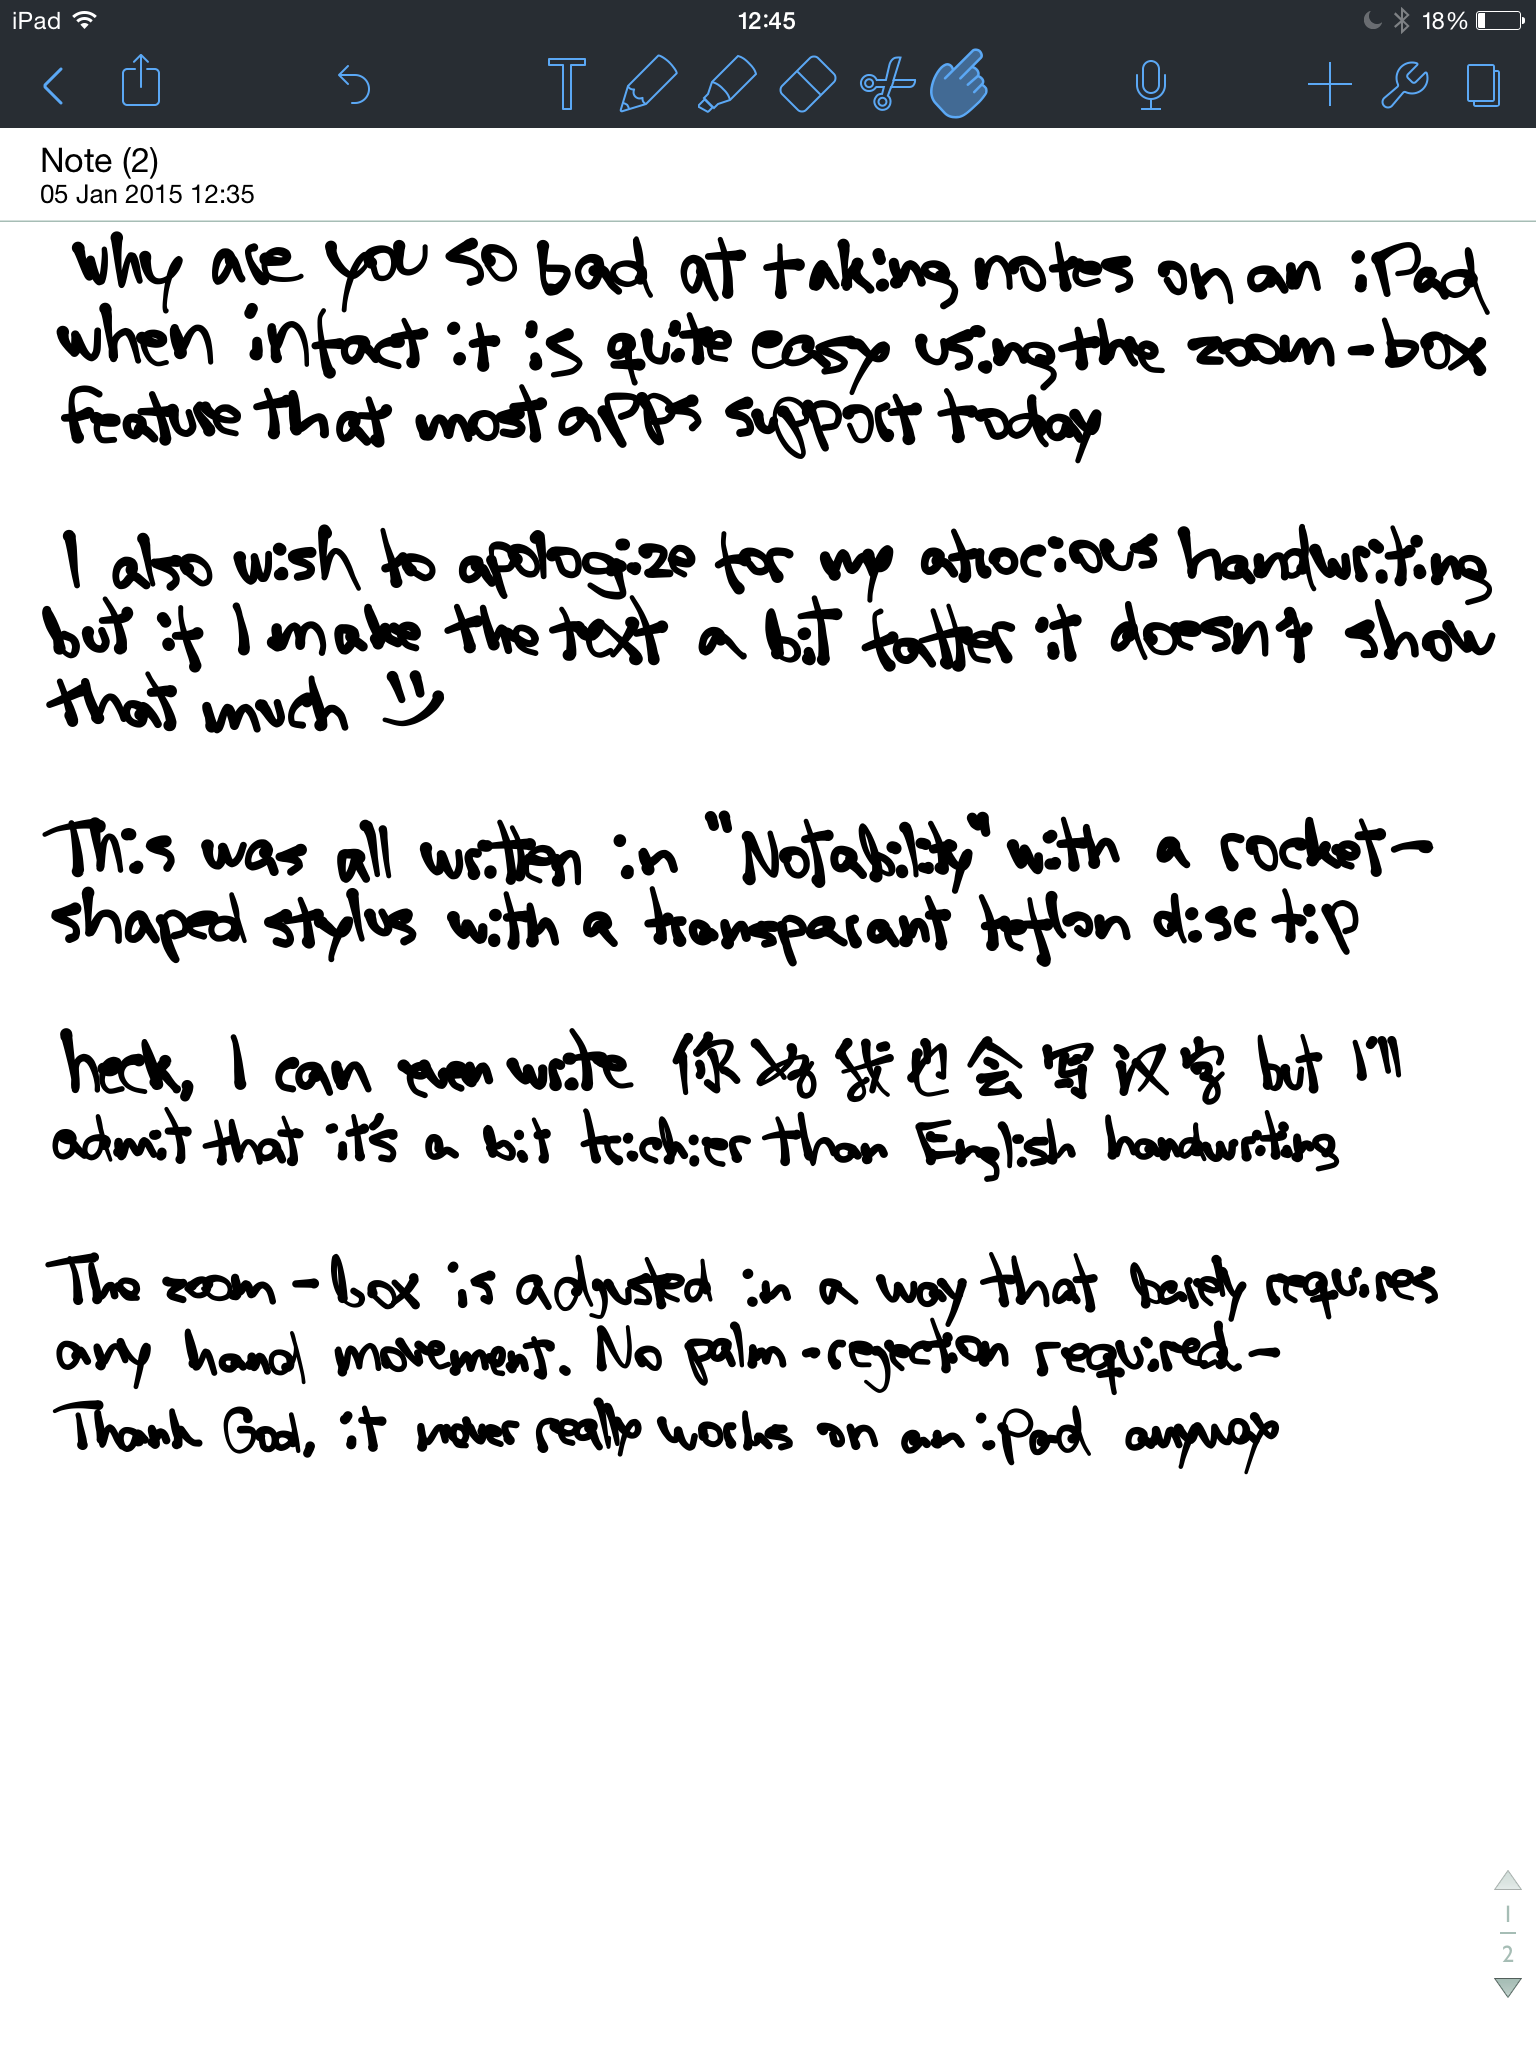 iPad
12:45
18%
T
Note (2)
05 Jan 2015 12:35
Why are you so bad at taking notes on an iPad
when infact it is quite easy using the zoom-box
feature that most apps support today
I also wish to apologize for my atrocious handwriting
but if I make the text a bit fatter it doesn't show
that much
This was all written in "Notability" with a rocket-
shaped stylus with a transparant teflon disc tip
heck, I can even write 你好我也会写汉字 but I'll
admit that it's a bit trichier than English handwriting
The zoom-box is adjusted in a way that barely requires
any hand movement. No palm-rejection required-
Thank God, it never really works on an iPad anyway
1
2